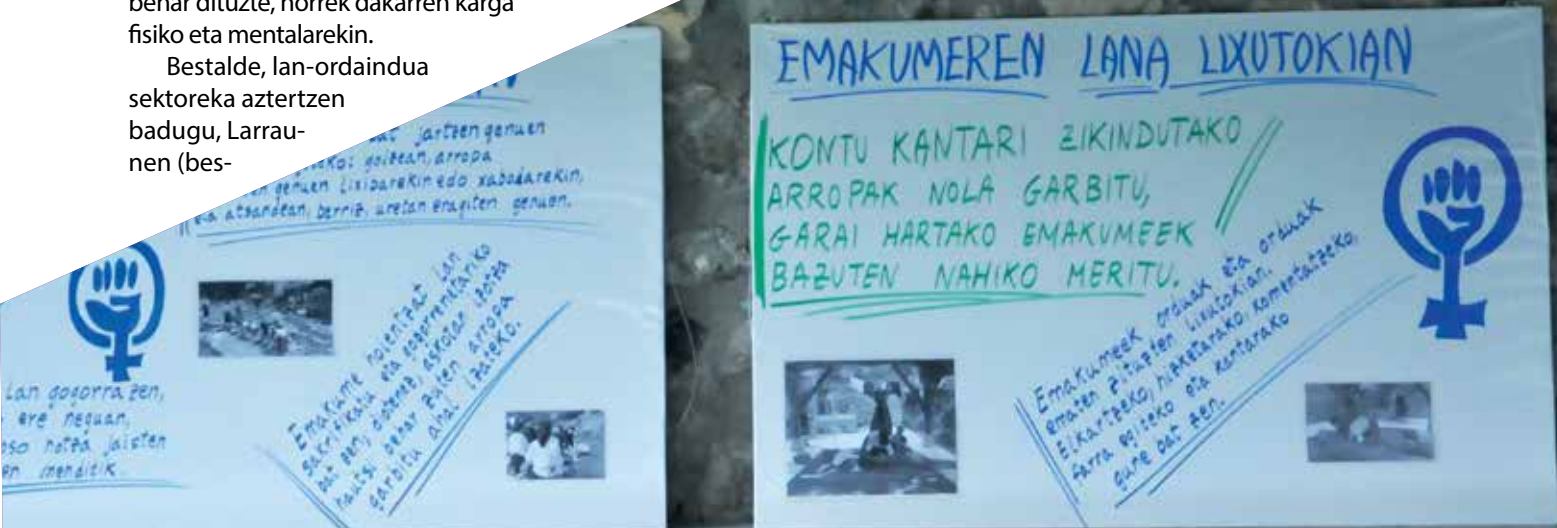 benar dituzte, horrek dakarren karga
fisiko eta mentalarekin.
Bestalde, lan-ordaindua
sektoreka aztertzen
badugu, Larrau-
nen (bes-
jartzen genuen
goizean, arropa
genuen lixibarekin edo xaboiarekin,
eta atsaldean, berriz, uretan eragiten genuen.
Emakume haientzat lan
sakrifikatu eta gogorrenetariko
bat zen, askotan izotza
hautsi behar zuten arropa
garbitu ahal izateko.
Lan gogorra zen,
ere neguan,
oso hotza jaisten
menditik.
EMAKUMEREN LANA LIXUTOKIAN
KONTU KANTARI ZIKINDUTAKO
ARROPAK NOLA GARBITU,
GARAI HARTAKO EMAKUMEEK
BAZUTEN NAHIKO MERITU.
Emakumeek orduak eta orduak
ematen zituzten lixutokian.
Elkartzeko, hizketarako, komentatzeko,
farra egiteko eta kantarako
gune bat zen.